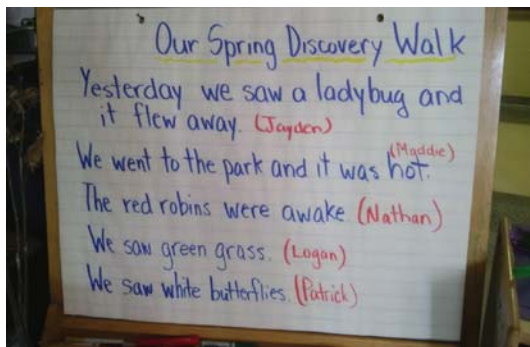 Our Spring Discovery Walk
Yesterday we saw a ladybug and
it flew away. (Jayden)
We went to the park and it was hot. (Maddie)
The red robins were awake (Nathan)
We saw green grass. (Logan)
We saw white butterflies. (Patrick)